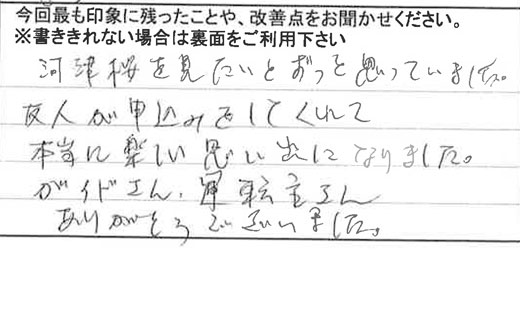 今回最も印象に残ったことや、改善点をお聞かせください。
※書ききれない場合は裏面をご利用下さい
河津桜を見たいとずっと思っていました。
友人が申込みをしてくれて
本当に楽しい思い出になりました。
ガイドさん、運転士さん
ありがとうございました。